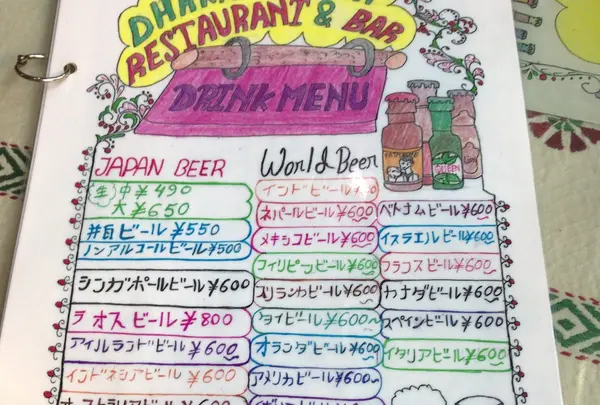 RESTAURANT & BAR
DRINK MENU
JAPAN BEER
生 中 ¥490
大 ¥650
丼瓦ビール ¥550
ノンアルコールビール ¥500
シンガポールビール ¥600
ラオスビール ¥800
アイルランドビール ¥600
インドネシアビール ¥600
World Beer
インドビール
ネパールビール ¥600
メキシコビール ¥600
フィリピンビール ¥600
スリランカビール ¥600
タイビール ¥600~
オランダビール ¥600
アメリカビール ¥600~
ベトナムビール ¥600
イスラエルビール ¥600
フランスビール ¥600
カナダビール ¥600
スペインビール ¥600
イタリアビール ¥600